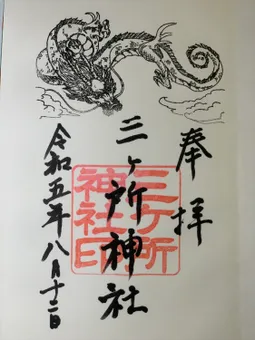 奉拝
三ヶ所神社
三ヶ所
神社印
令和五年八月十二日